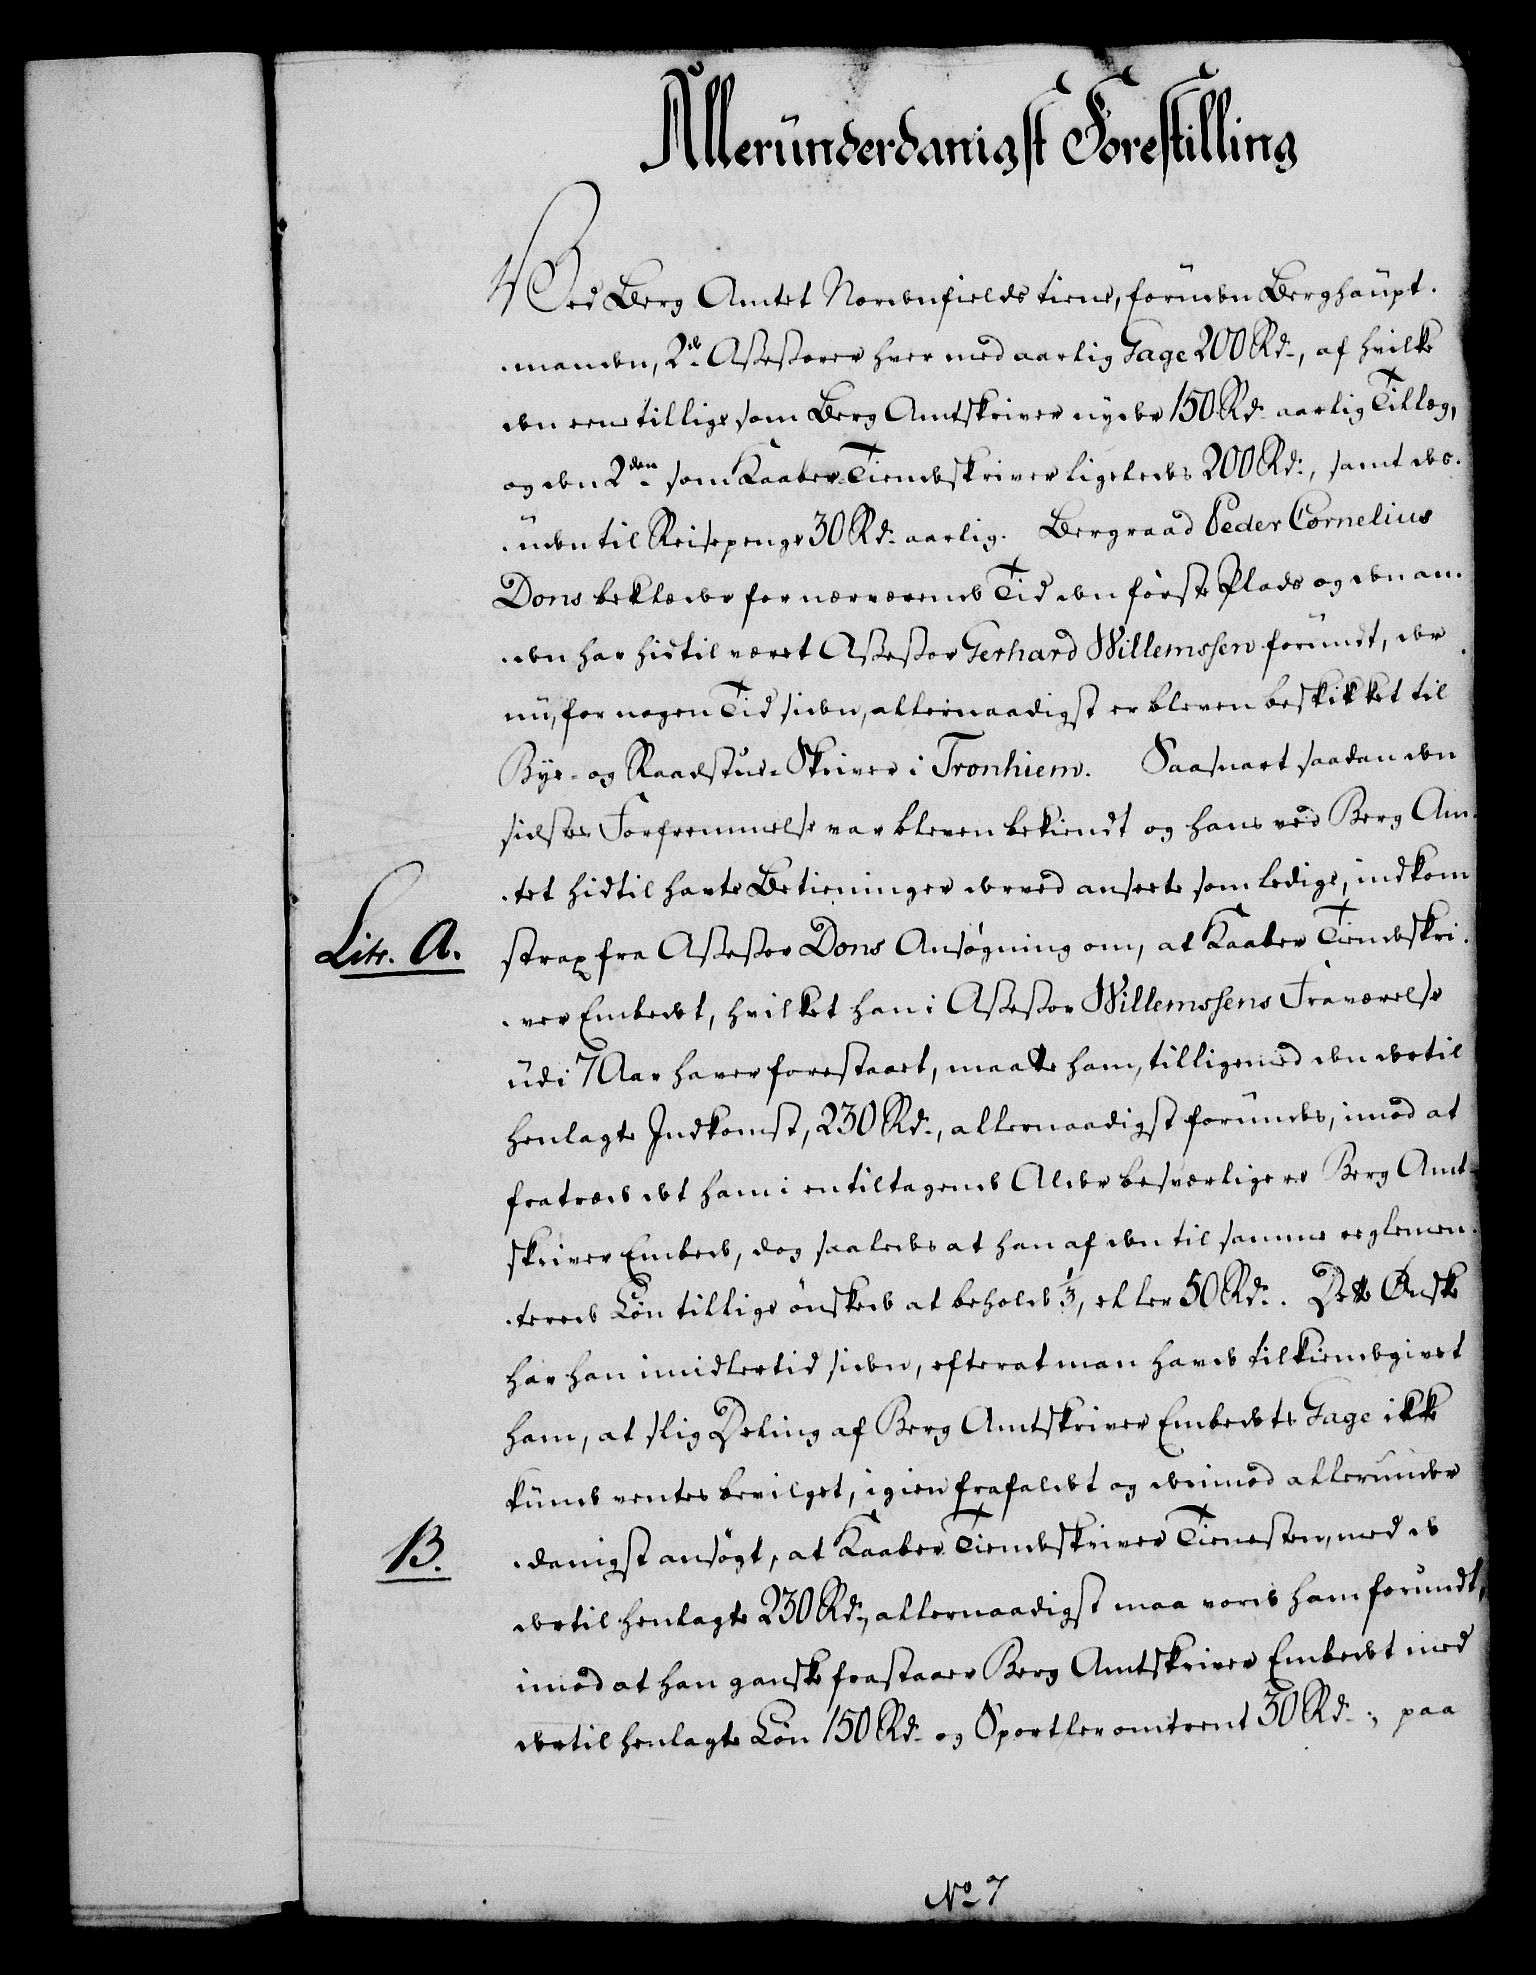 Alleründerdanigst Forestilling
Ved Berg Amtet Nordenfields tiene, foruden Berghaüpt-
manden, 2de Assessorer hver med aarlig Gage 200 Rd., af hvilke
den eene tillige som Berg Amtskriver nyder 150 Rd. aarlig Tillæg,
og den 2den som Kaaber-Tiendeskriver ligeledes 200 Rd., samt des-
üden til Reisepenge 30 Rd. aarlig. Bergraad Peder Cornelius
Dons beklæder for nærværende Tid den første Plads og den an-
den har hidtil været Assessor Gerhard Willemssen forundt, der
nü, for nogen Tid siden, allernaadigst er bleven beskikket til
Bye- og Raadstue-Skriver i Tronhiem. Saasnart saadan den
sidstes Forfremmelse var bleven bekiendt og hans ved Berg Am-
tet hidtil havte Betieninger derved ansaete som ledige, indkom
Litr. A.
strax fra Assessor Dons Ansøgning om, at Kaaber Tiendeskri-
ver Embedet, hvilket han i Assessor Willemssens Fraværelse
üdi 7 Aar haver forestaaet, maatte ham, tilligemed den dertil
henlagte Indkomst, 230 Rd., allernaadigst forundes, imod at
fratræde det ham i en tiltagende Alder besværligere Berg Amt-
skriver Embede, dog saaledes at han af den til samme reglemen-
terede Løn tillige ønskede at beholde 1/3, eller 50 Rd. Dette Ønske
har han imidlertid siden, efterat man havde tilkiendegivet
ham, at slig Deling af Berg Amtskriver Embedets Gage ikke
künde ventes bevilget, igien frafaldet og derimod allerunder-
B.
danigst ansøgt, at Kaaber Tiendeskriver Tienesten, med de
dertil henlagte 230 Rd., allernaadigst maa vorde ham forundt,
imod at han ganske fra staaer Berg Amtskriver Embedet med
dertil henlagte Løn 150 Rd. og Sportler omtrent 30 Rd.; paa
No 7